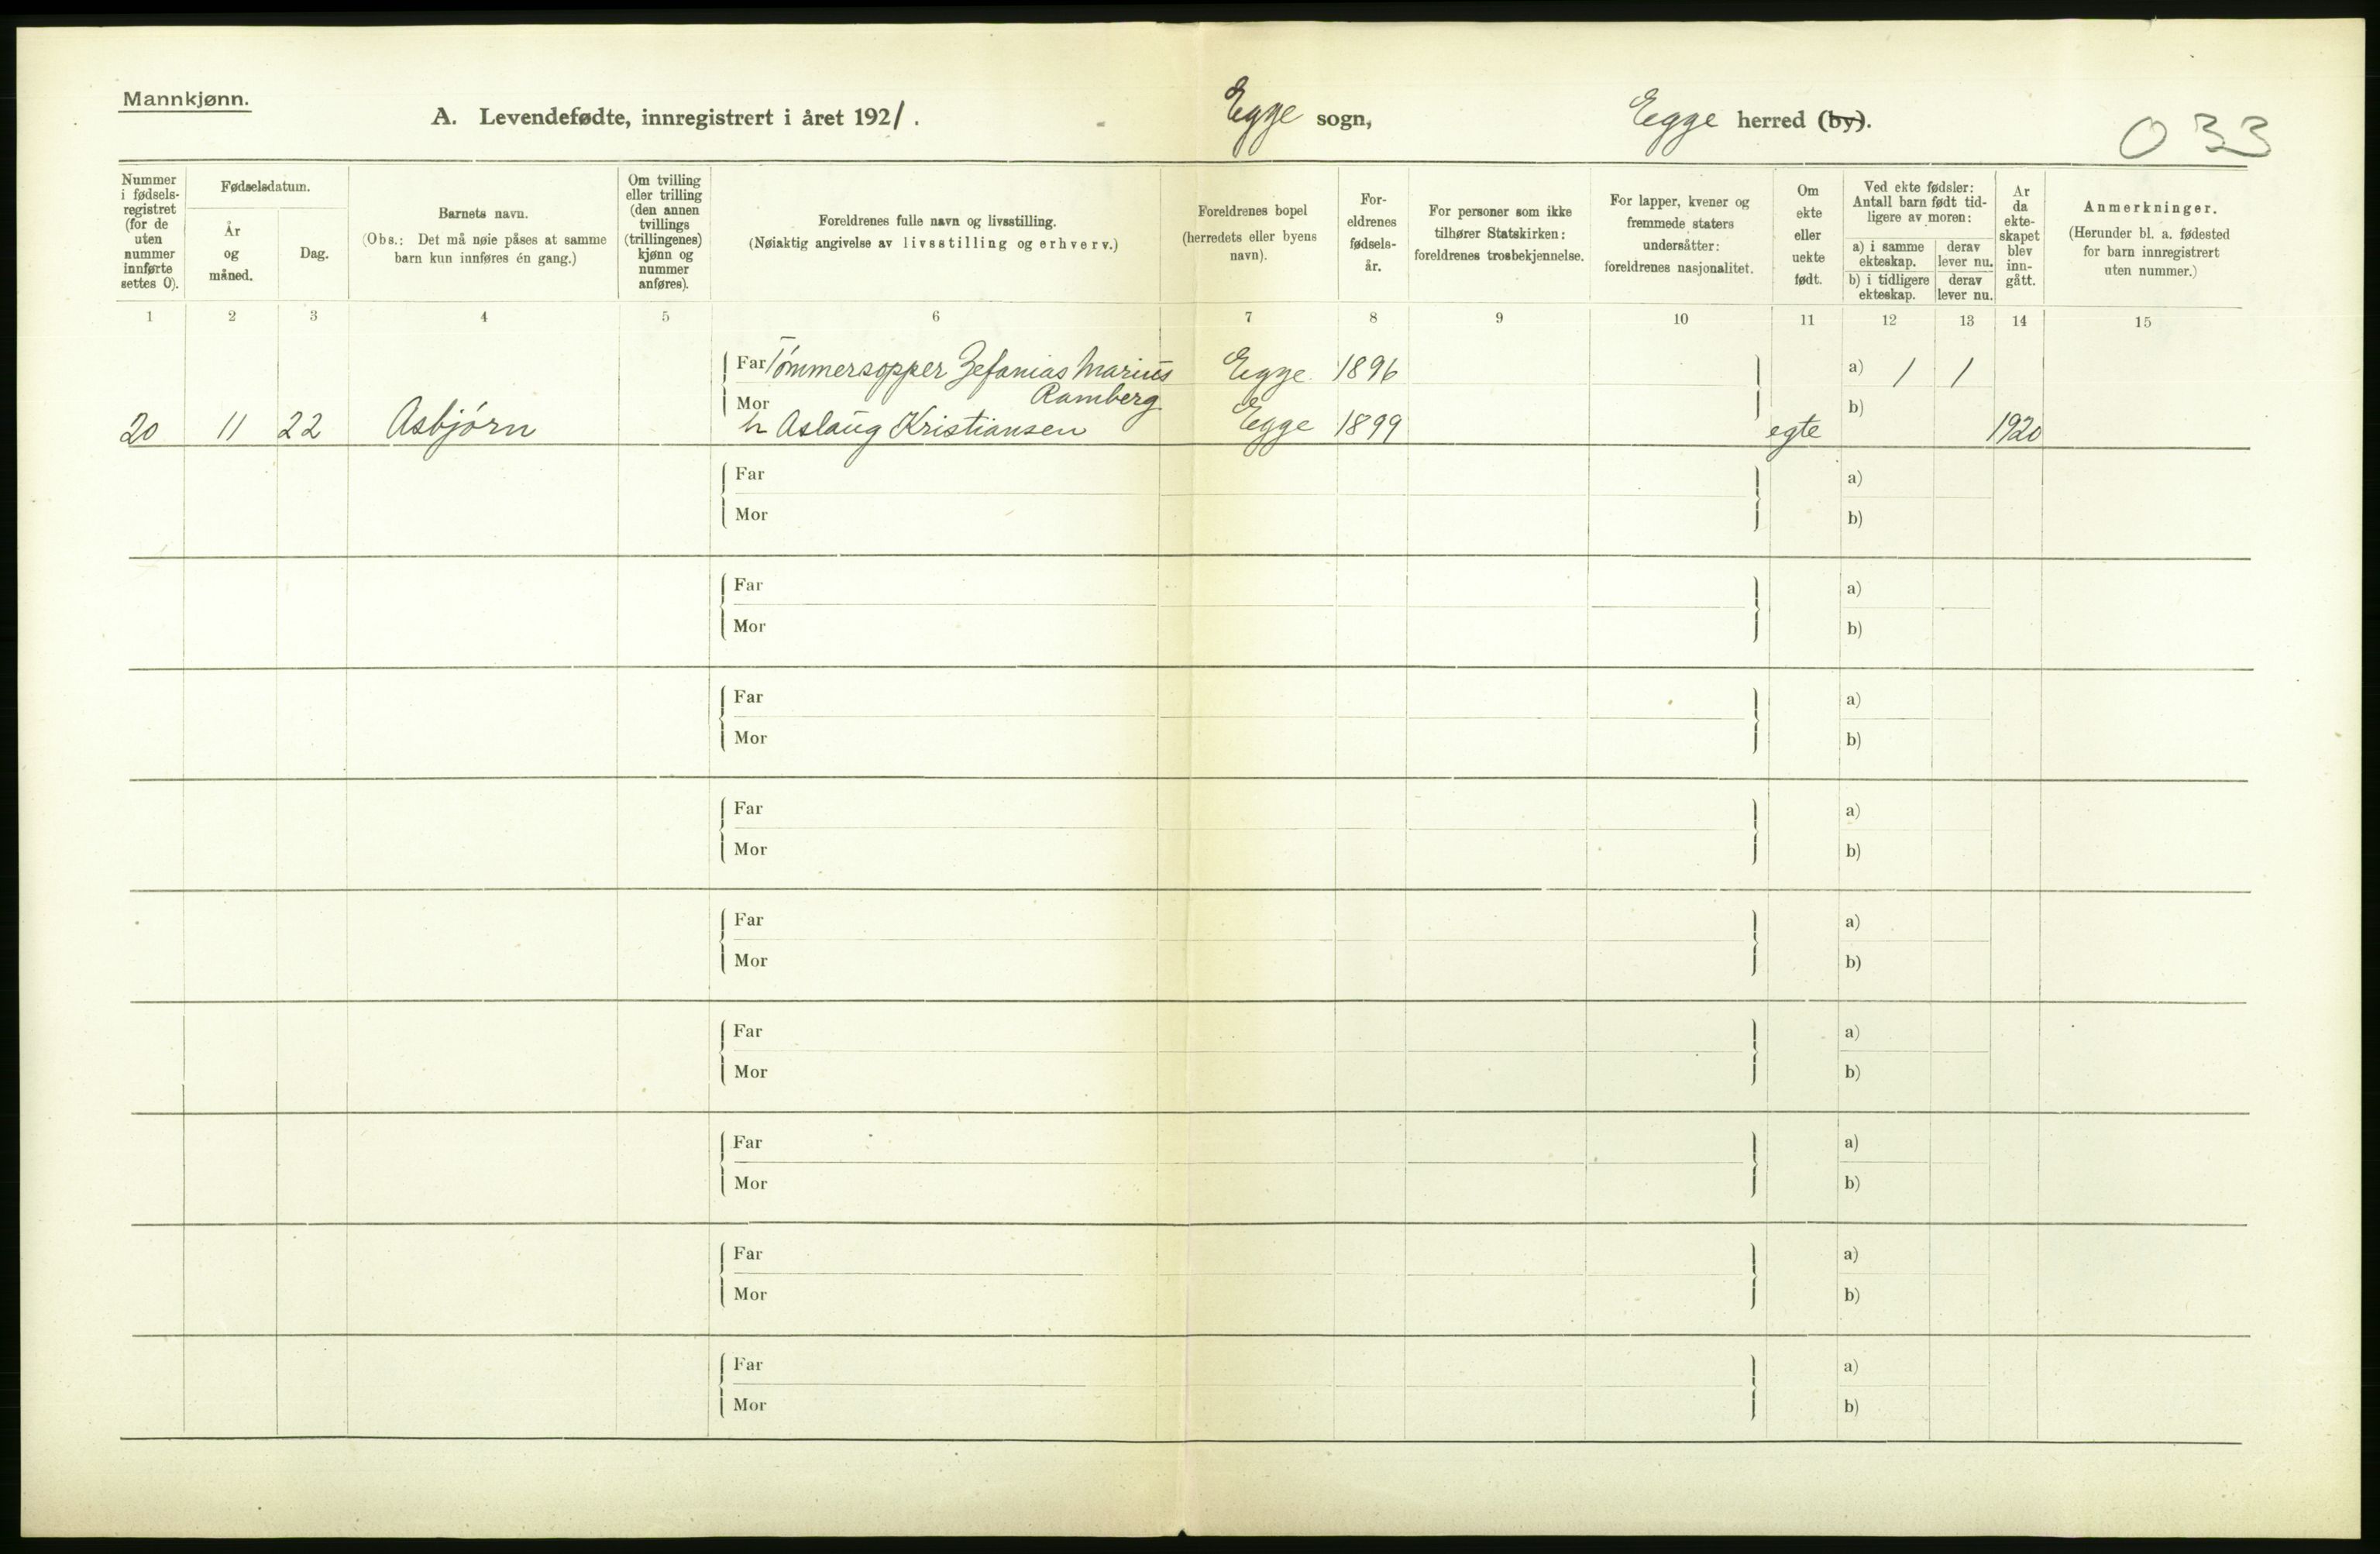 Mannkjønn.
A. Levendefødte, innregistrert i året 1921.
Egge sogn,
Egge herred (by).
033
Nummer i fødsels-registret (for de uten nummer innførte settes 0).
Fødselsdatum.
År og måned.
Dag.
Barnets navn.
(Obs.: Det må nøie påses at samme barn kun innføres én gang.)
Om tvilling eller trilling (den annen tvillings (trillingenes) kjønn og nummer anføres).
Foreldrenes fulle navn og livsstilling.
(Nøiaktig angivelse av livsstilling og erhverv.)
Foreldrenes bopel (herredets eller byens navn).
For-eldrenes fødsels-år.
For personer som ikke tilhører Statskirken: foreldrenes trosbekjennelse.
For lapper, kvener og fremmede staters undersåtter: foreldrenes nasjonalitet.
Om ekte eller uekte født.
Ved ekte fødsler: Antall barn født tid-ligere av moren:
a) i samme ekteskap.
derav lever nu.
b) i tidligere ekteskap.
derav lever nu.
År da ekte-skapet blev inn-gått.
Anmerkninger.
(Herunder bl. a. fødested for barn innregistrert uten nummer.)
1 2 3 4 5 6 7 8 9 10 11 12 13 14 15
Far Tömmersopper Zefanias Marius Egge 1896 a) 1 1
Mor Ramberg b)
20 11 22 Asbjörn h Aslaug Kristiansen Egge 1899 egte 1920
Far a)
Mor b)
Far a)
Mor b)
Far a)
Mor b)
Far a)
Mor b)
Far a)
Mor b)
Far a)
Mor b)
Far a)
Mor b)
Far a)
Mor b)
Far a)
Mor b)